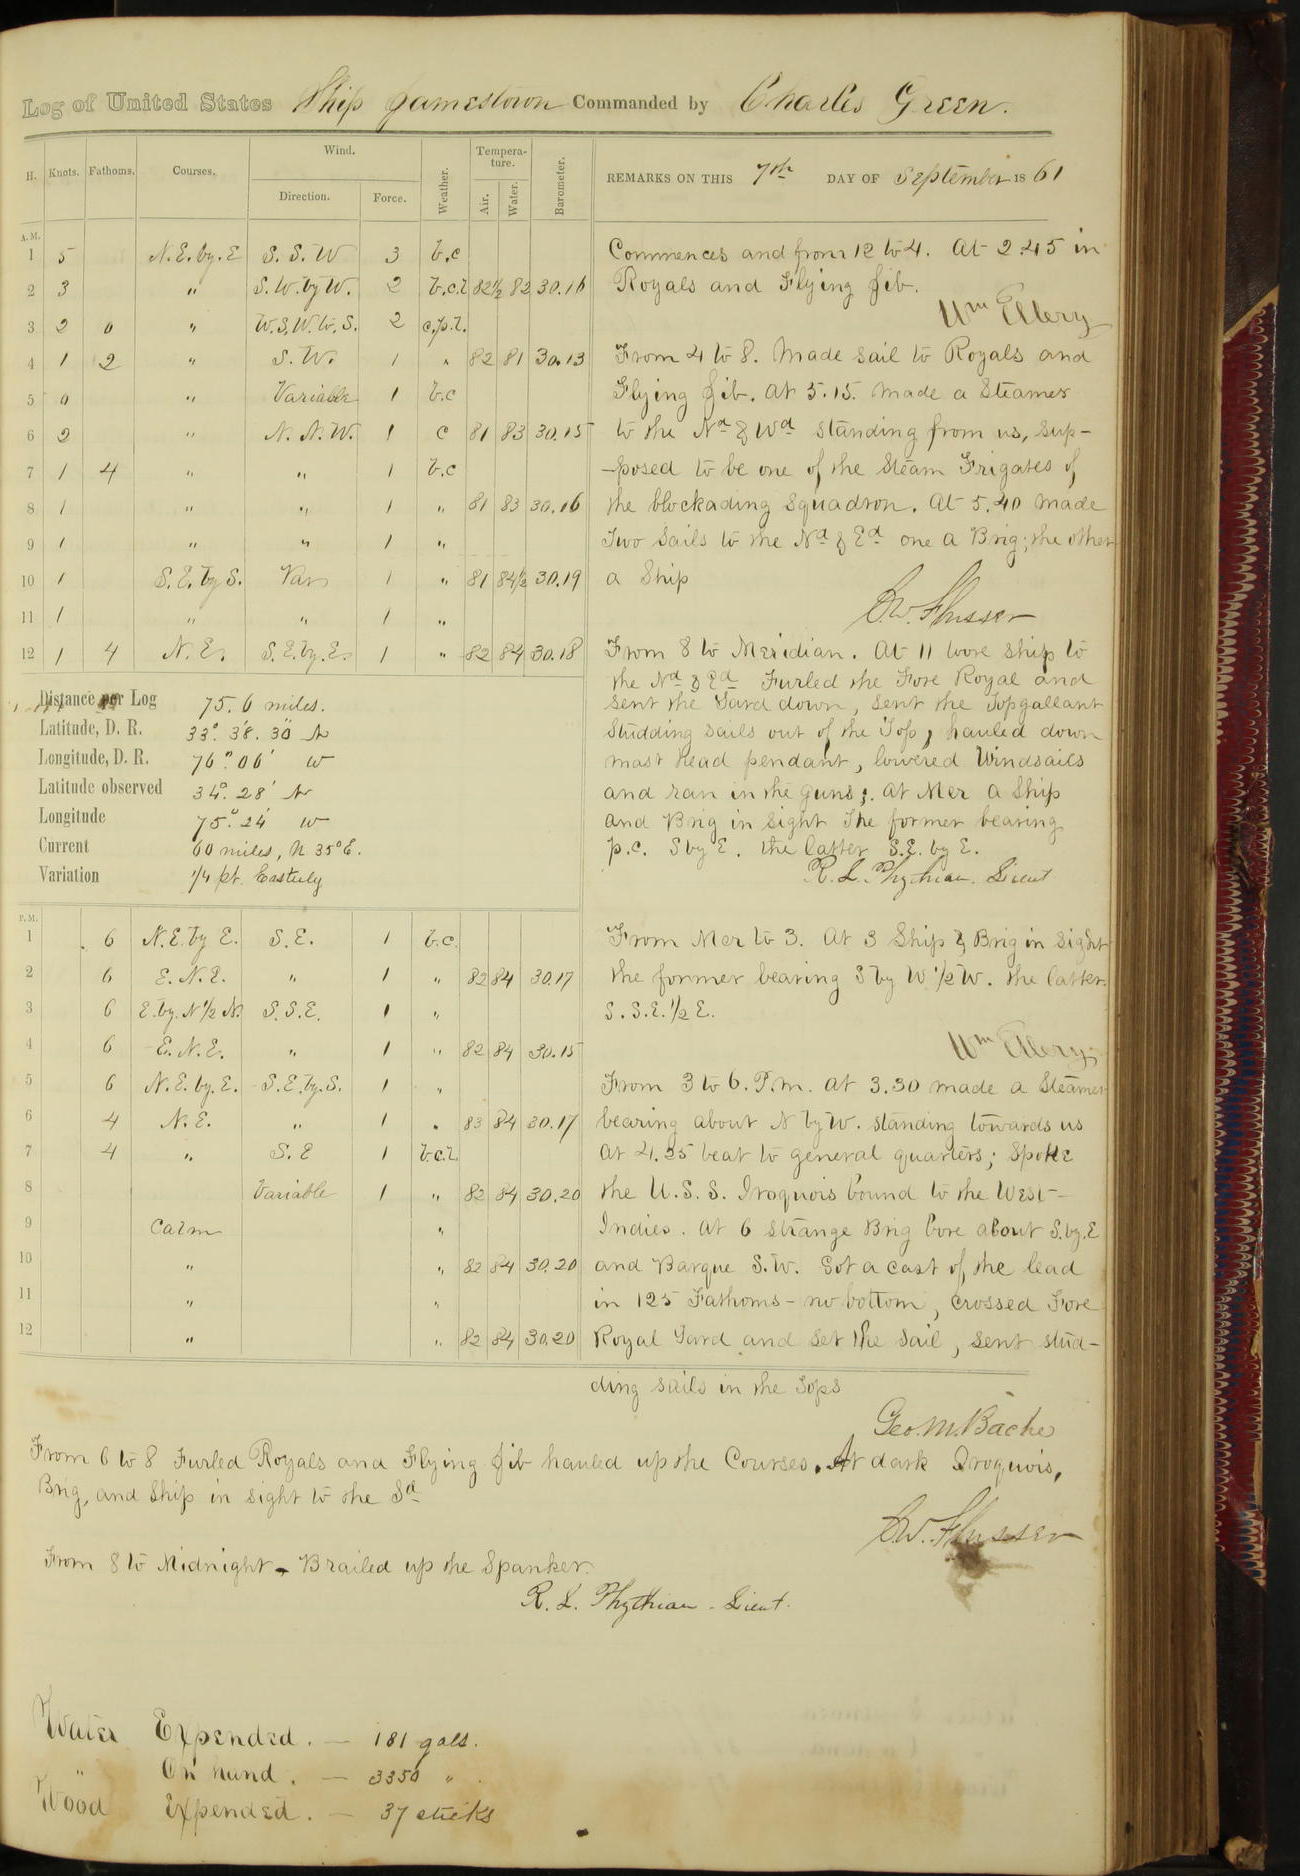 Log of United States Ship Jamestown Commanded by Charles Green.
H. Knots. Fathoms. Courses. Wind. Direction. Force. Weather. Tempera-ture. Air. Water. Barometer.
REMARKS ON THIS 7th DAY OF September 1861
A.M.
1 5 N.E. by. E S. S. W 3 b.c
2 3 " S.W. by W. 2 b.c.l 82½ 82 30.16
3 2 0 " W.S.W. to. S. 2 c.p.l.
4 1 2 " S. W. 1 " 82 81 30.13
5 0 " Variable 1 b.c
6 2 " N. N. W. 1 c 81 83 30.15
7 1 4 " " 1 b.c
8 1 " " 1 " 81 83 30.16
9 1 " " 1 "
10 1 S.E. by S. Var 1 " 81 84½ 30.19
11 1 " " 1 "
12 1 4 N.E. S.E. by. E. 1 " 82 84 30.18
Commences and from 12 to 4. At 2.45 in
Royals and Flying Jib.
Wm Ellery
From 4 to 8. Made sail to Royals and
Flying Jib. At 5.15. made a Steamer
to the Nd & Wd standing from us, sup-
-posed to be one of the Steam Frigates of
the blockading squadron. At 5.40 made
Two sails to the Nd & Ed one a Brig; the other
a Ship
C.W. Flusser
From 8 to Meridian. At 11 wore ship to
the Nd & Ed Furled the Fore Royal and
sent the Yard down, sent the Topgallant
Studding sails out of the Top, hauled down
mast head pendant, lowered Windsails
and ran in the guns; At Mer a Ship
and Brig in sight The former bearing
p.c. S by E. the latter S.E. by E.
R. L. Phythian. Lieut
Distance per Log 75.6 miles.
Latitude, D. R. 33° 38' 30" N
Longitude, D. R. 76° 06' W
Latitude observed 34° 28' N
Longitude 75° 24' W
Current 60 miles, N 35° E.
Variation 1/4 pt. Easterly
P.M.
1 6 N.E. by E. S.E. 1 b.c.
2 6 E. N.E. " 1 " 82 84 30.17
3 6 E. by. N ½ N. S.S.E. 1 "
4 6 E. N.E. " 1 " 82 84 30.15
5 6 N.E. by. E. S.E. by. S. 1 "
6 4 N.E. " 1 " 83 84 30.17
7 4 " S.E 1 b.c.l.
8 Variable 1 " 82 84 30.20
9 Calm "
10 " " 82 84 30.20
11 " "
12 " " 82 84 30.20
From Mer to 3. At 3 Ship & Brig in sight
the former bearing S by W ½ W. the latter
S.S.E. ½ E.
Wm Ellery
From 3 to 6. P.m. At 3.30 made a Steamer
bearing about N by W. standing towards us
At 4.35 beat to general quarters; Spoke
the U.S.S. Iroquois bound to the West-
Indies. At 6 strange Brig bore about S. by. E
and Barque S.W. Got a cast of the lead
in 125 Fathoms - no bottom, crossed Fore
Royal Yard and set the sail, sent stud-
ding sails in the Tops
Geo. M. Bache
From 6 to 8 Furled Royals and Flying Jib hauled up the Courses. At dark Iroquois,
Brig, and Ship in sight to the Sd
C.W. Flusser
From 8 to Midnight - Brailed up the Spanker.
R. L. Phythian - Lieut.
Water Expended. — 181 galls.
" On hand. — 3350 "
Wood Expended. — 37 sticks